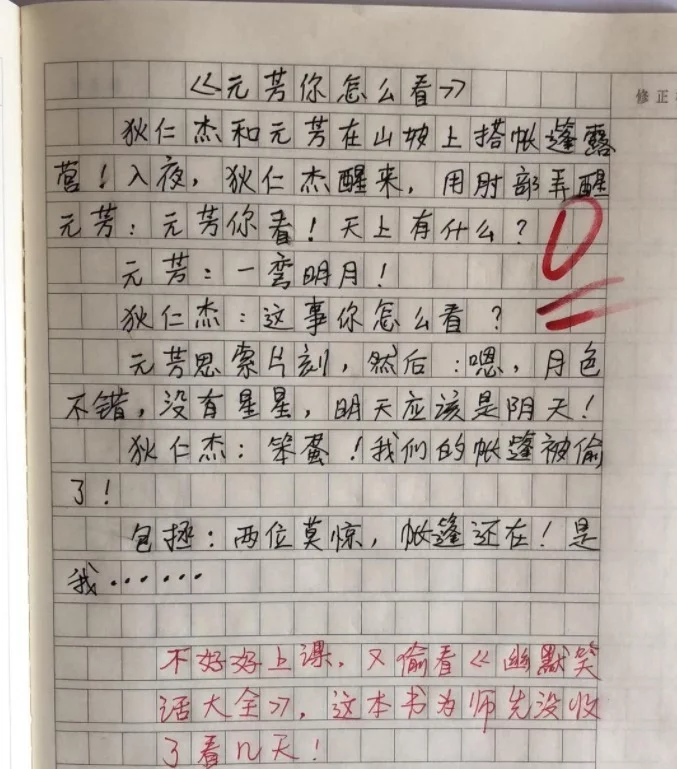 修正
《元芳你怎么看》
狄仁杰和元芳在山坡上搭帐蓬露
营！入夜，狄仁杰醒来，用肘部弄醒
元芳：元芳你看！天上有什么？
0
元芳：一弯明月！
狄仁杰：这事你怎么看？
元芳思索片刻，然后：嗯，月色
不错，没有星星，明天应该是阴天！
狄仁杰：笨蛋！我们的帐蓬被偷
了！
包拯：两位莫惊，帐篷还在！是
我······
不好好上课，又偷看《幽默笑
话大全》，这本书为师先没收
了看几天！